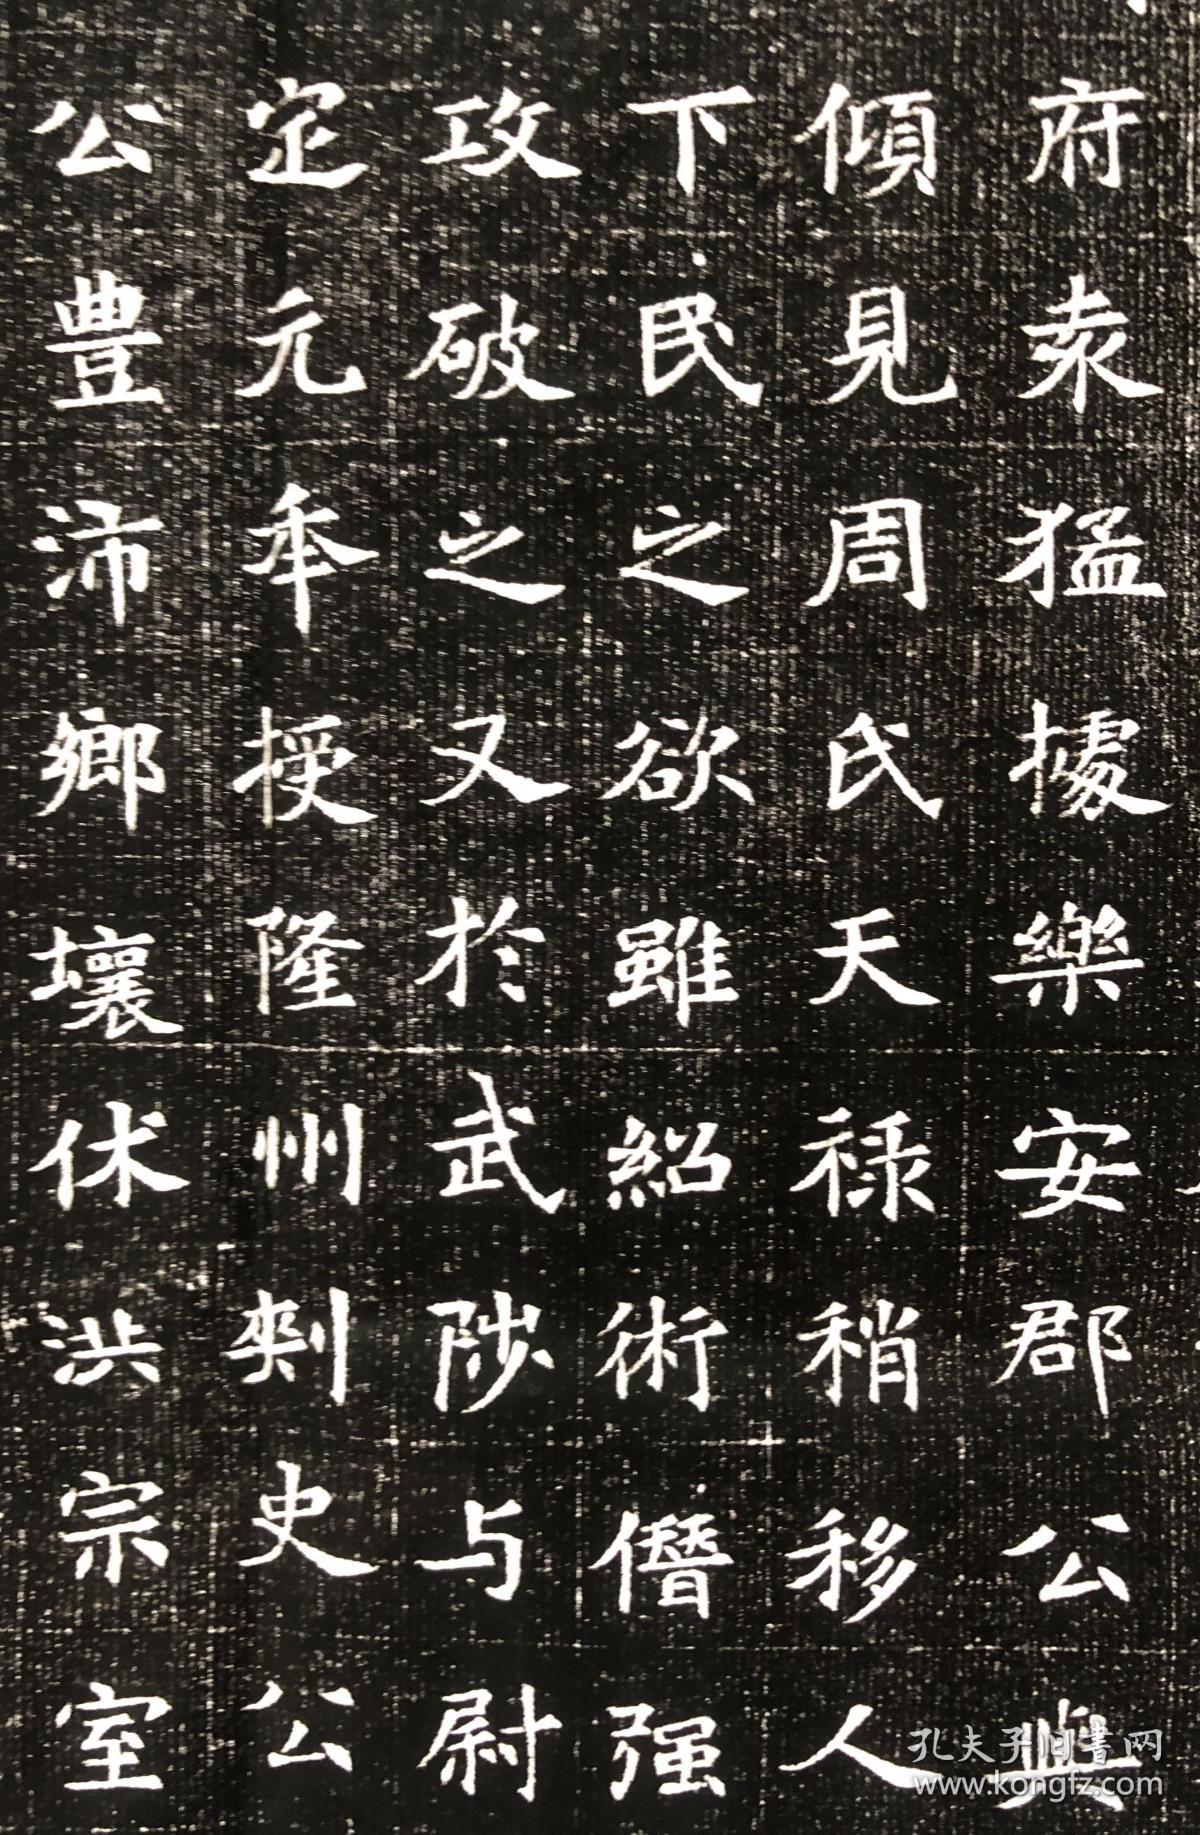 府泰猛據樂安郡公與
傾見周氏天祿稍移人
下民之欲雖紹術僭强
攻破之又於武陟与尉
定元年授隆州刺史公
公豊沛鄉壤伏洪宗室
孔夫子旧書网
www.kongfz.com